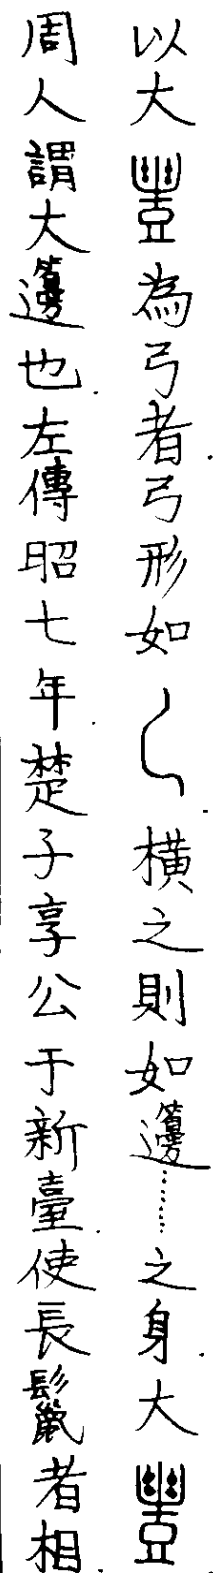 以大豐為弓者弓形如 橫之則如籩……之身大豐
周人謂大籩也左傳昭七年楚子享公于新臺使長鬣者相